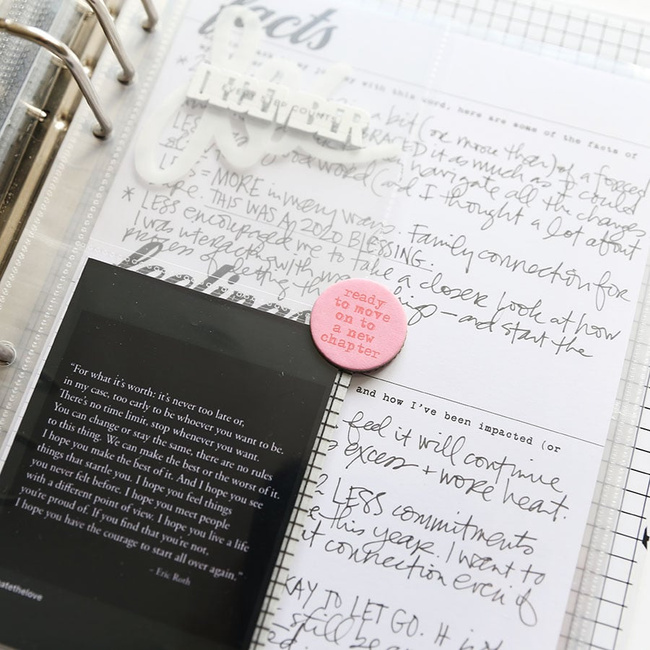 facts
DECEMBER
with this word, here are some of the facts of
bit (or more than) of a forced
it as much as I could
word (and I thought a lot about navigate all the changes
= MORE in many ways. Family connection for
THIS WAS A 2020 BLESSING.
* LESS encouraged me to take a closer look at how
I was interacting with
process of letting things go - and start the
feelings
ready
to move
on to
a new
chapter
and how I've been impacted (or
feel it will continue
excess + more heart.
LESS commitments
this year. I want to
connection even if
KAY TO LET GO. It is
still be
"For what it's worth: it's never too late or,
in my case, too early to be whoever you want to be.
There's no time limit, stop whenever you want.
You can change or stay the same, there are no rules
to this thing. We can make the best or the worst of it.
I hope you make the best of it. And I hope you see
things that startle you. I hope you feel things
you never felt before. I hope you meet people
with a different point of view. I hope you live a life
you're proud of. If you find that you're not,
I hope you have the courage to start all over again."
- Eric Roth
atethelove